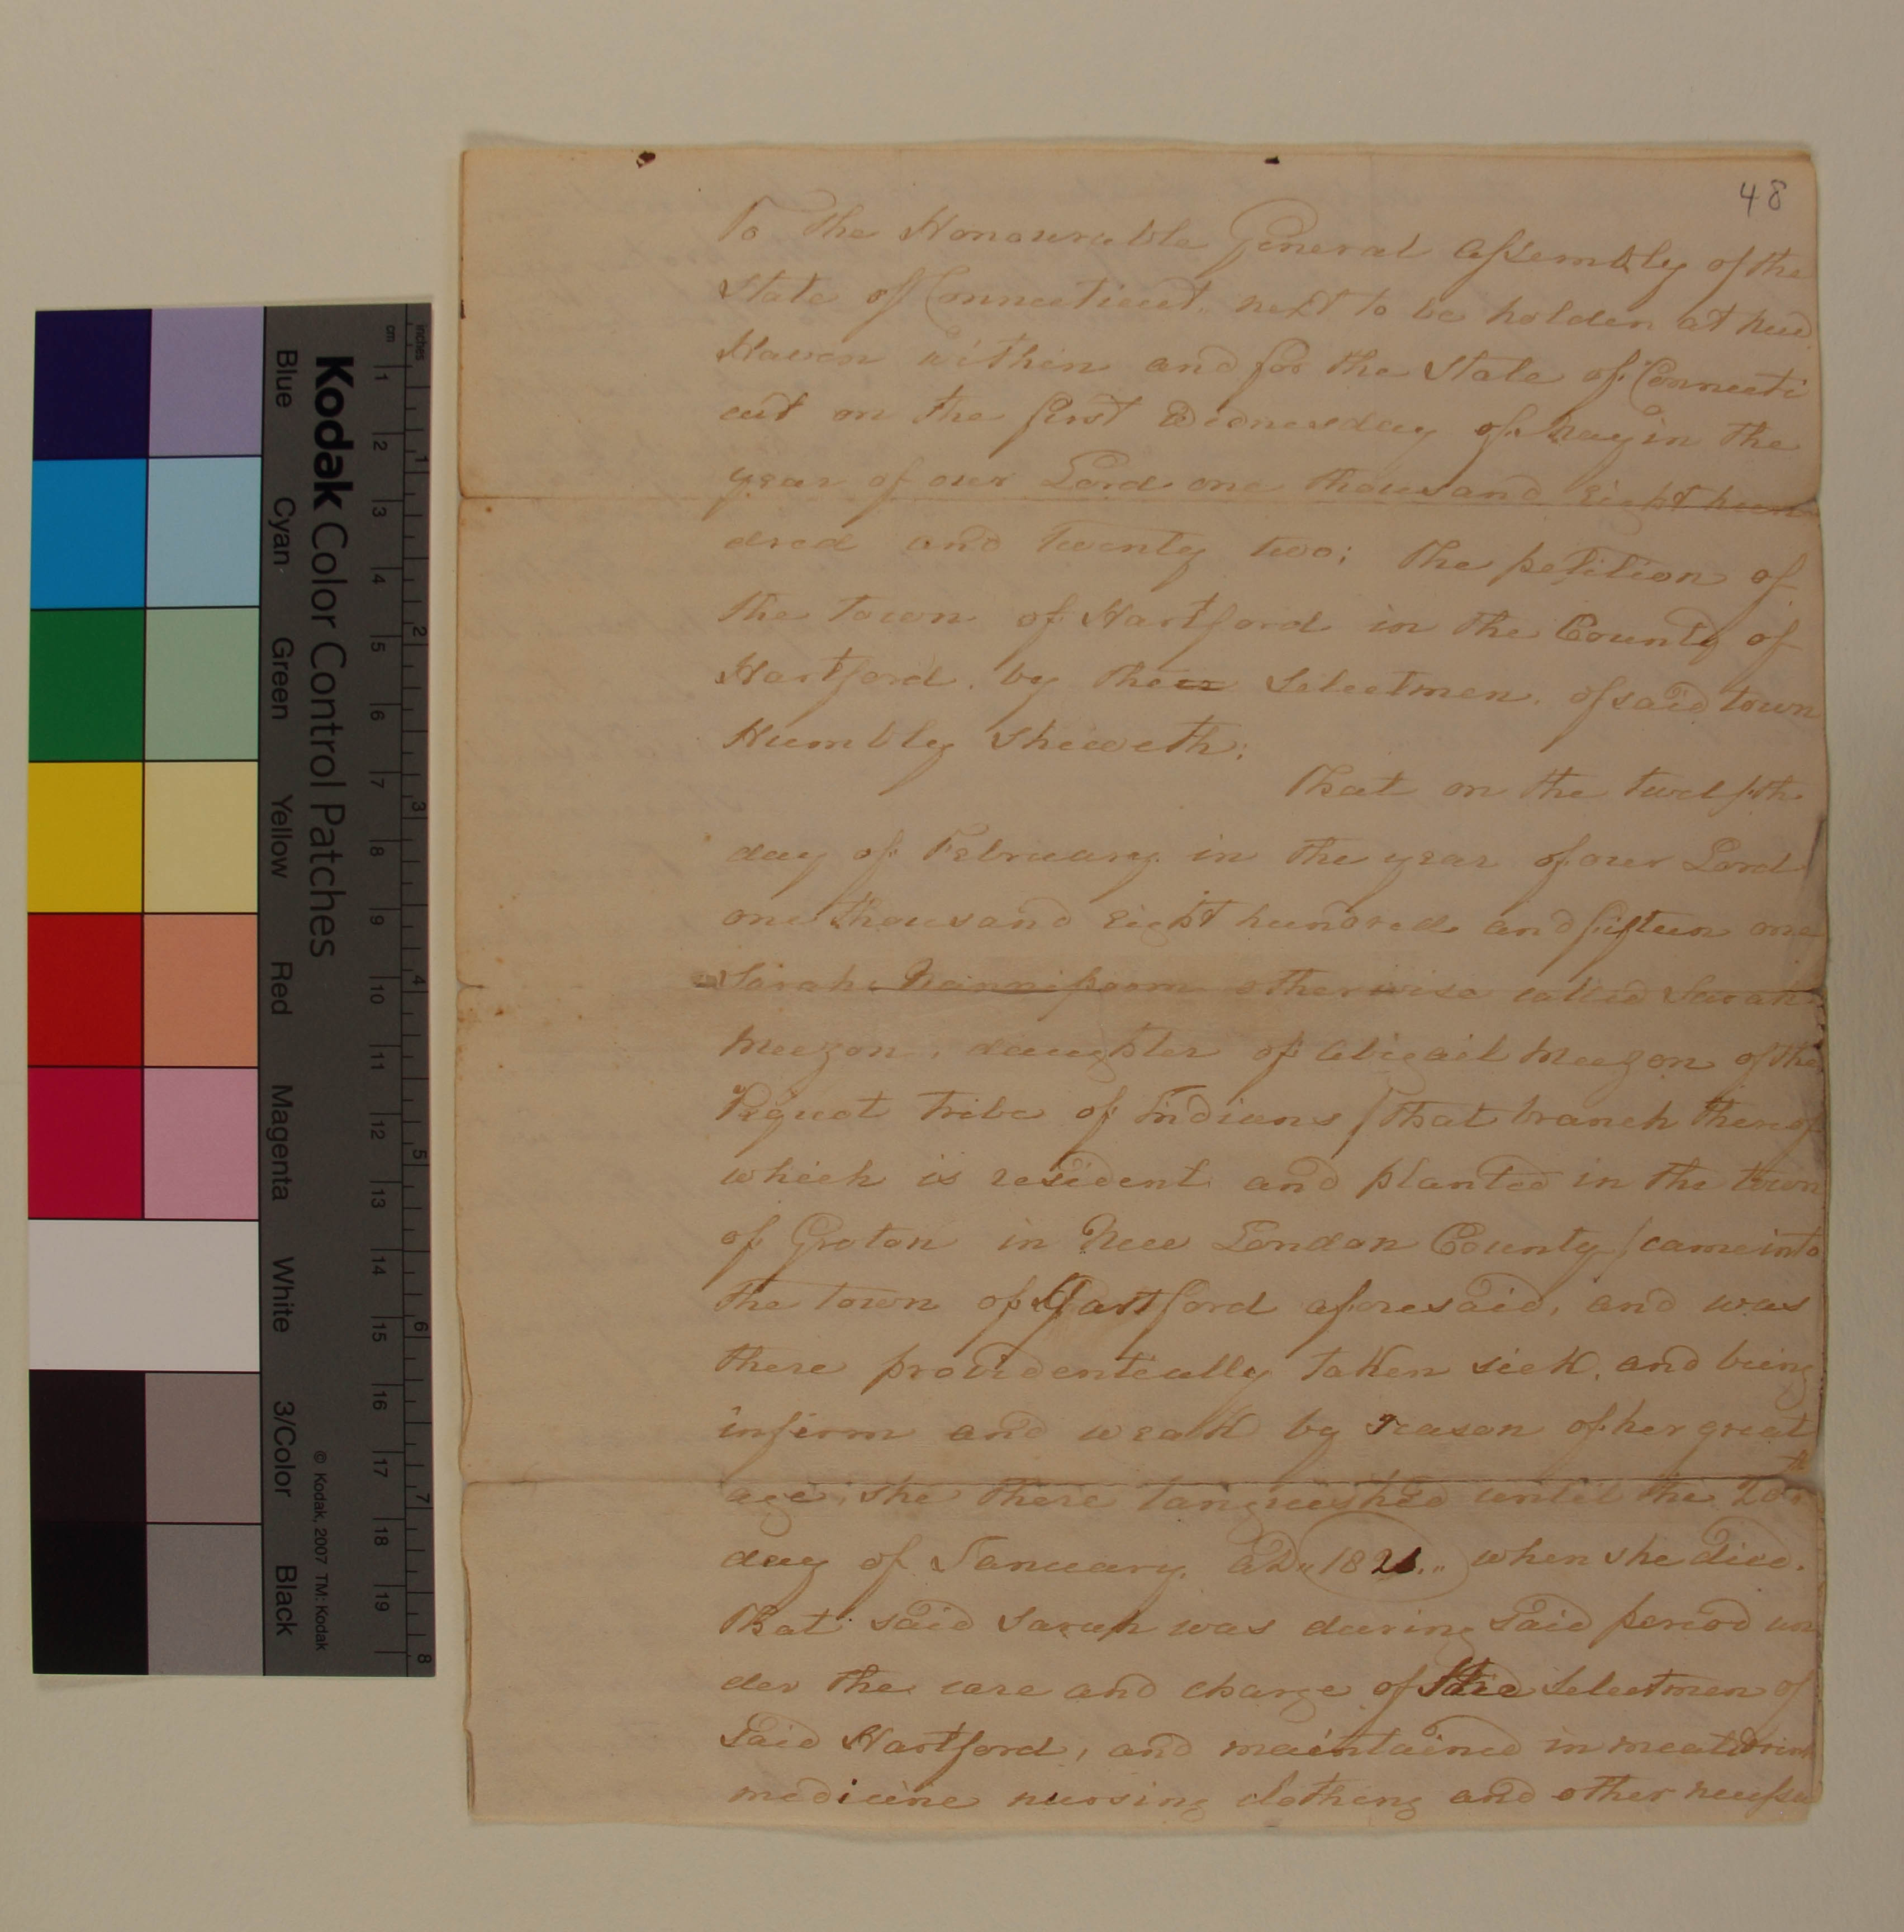 48
To the Honourable General Assembly of the
State of Connecticut. next to be holden at New
Haven within and for the State of Connecti
cut on the first Wednesday of May in the
year of our Lord one thousand eight hun
dred and twenty two; The petition of
the town of Hartford in the County of
Hartford. by the Selectmen. of said town
Humbly Sheweth;
That on the twelfth
day of February. in the year of our Lord
one thousand eight hundred and fifteen one
Sarah otherwise called Sarah
Meezon, daughter of Abigail Meezon of the
Pequot tribe of Indians / that branch thereof
which is resident and planted in the town
of Groton in New London County / came into
the town of Hartford aforesaid, and was
there providentially taken sick, and being
infirm and weak by reason of her great
age, she there languished until the
day of January. AD "1821." when she died.
That said Sarah was during said period un
der the care and charge of the Selectmen of
said Hartford, and maintained in meat drink
medicine nursing clothing and other necessa
inches
cm
1
2
3
4
5
6
7
8
9
10
11
12
13
14
15
16
17
18
19
1
2
3
4
5
6
7
8
Kodak Color Control Patches
© Kodak, 2007 TM: Kodak
Blue
Cyan
Green
Yellow
Red
Magenta
White
3/Color
Black